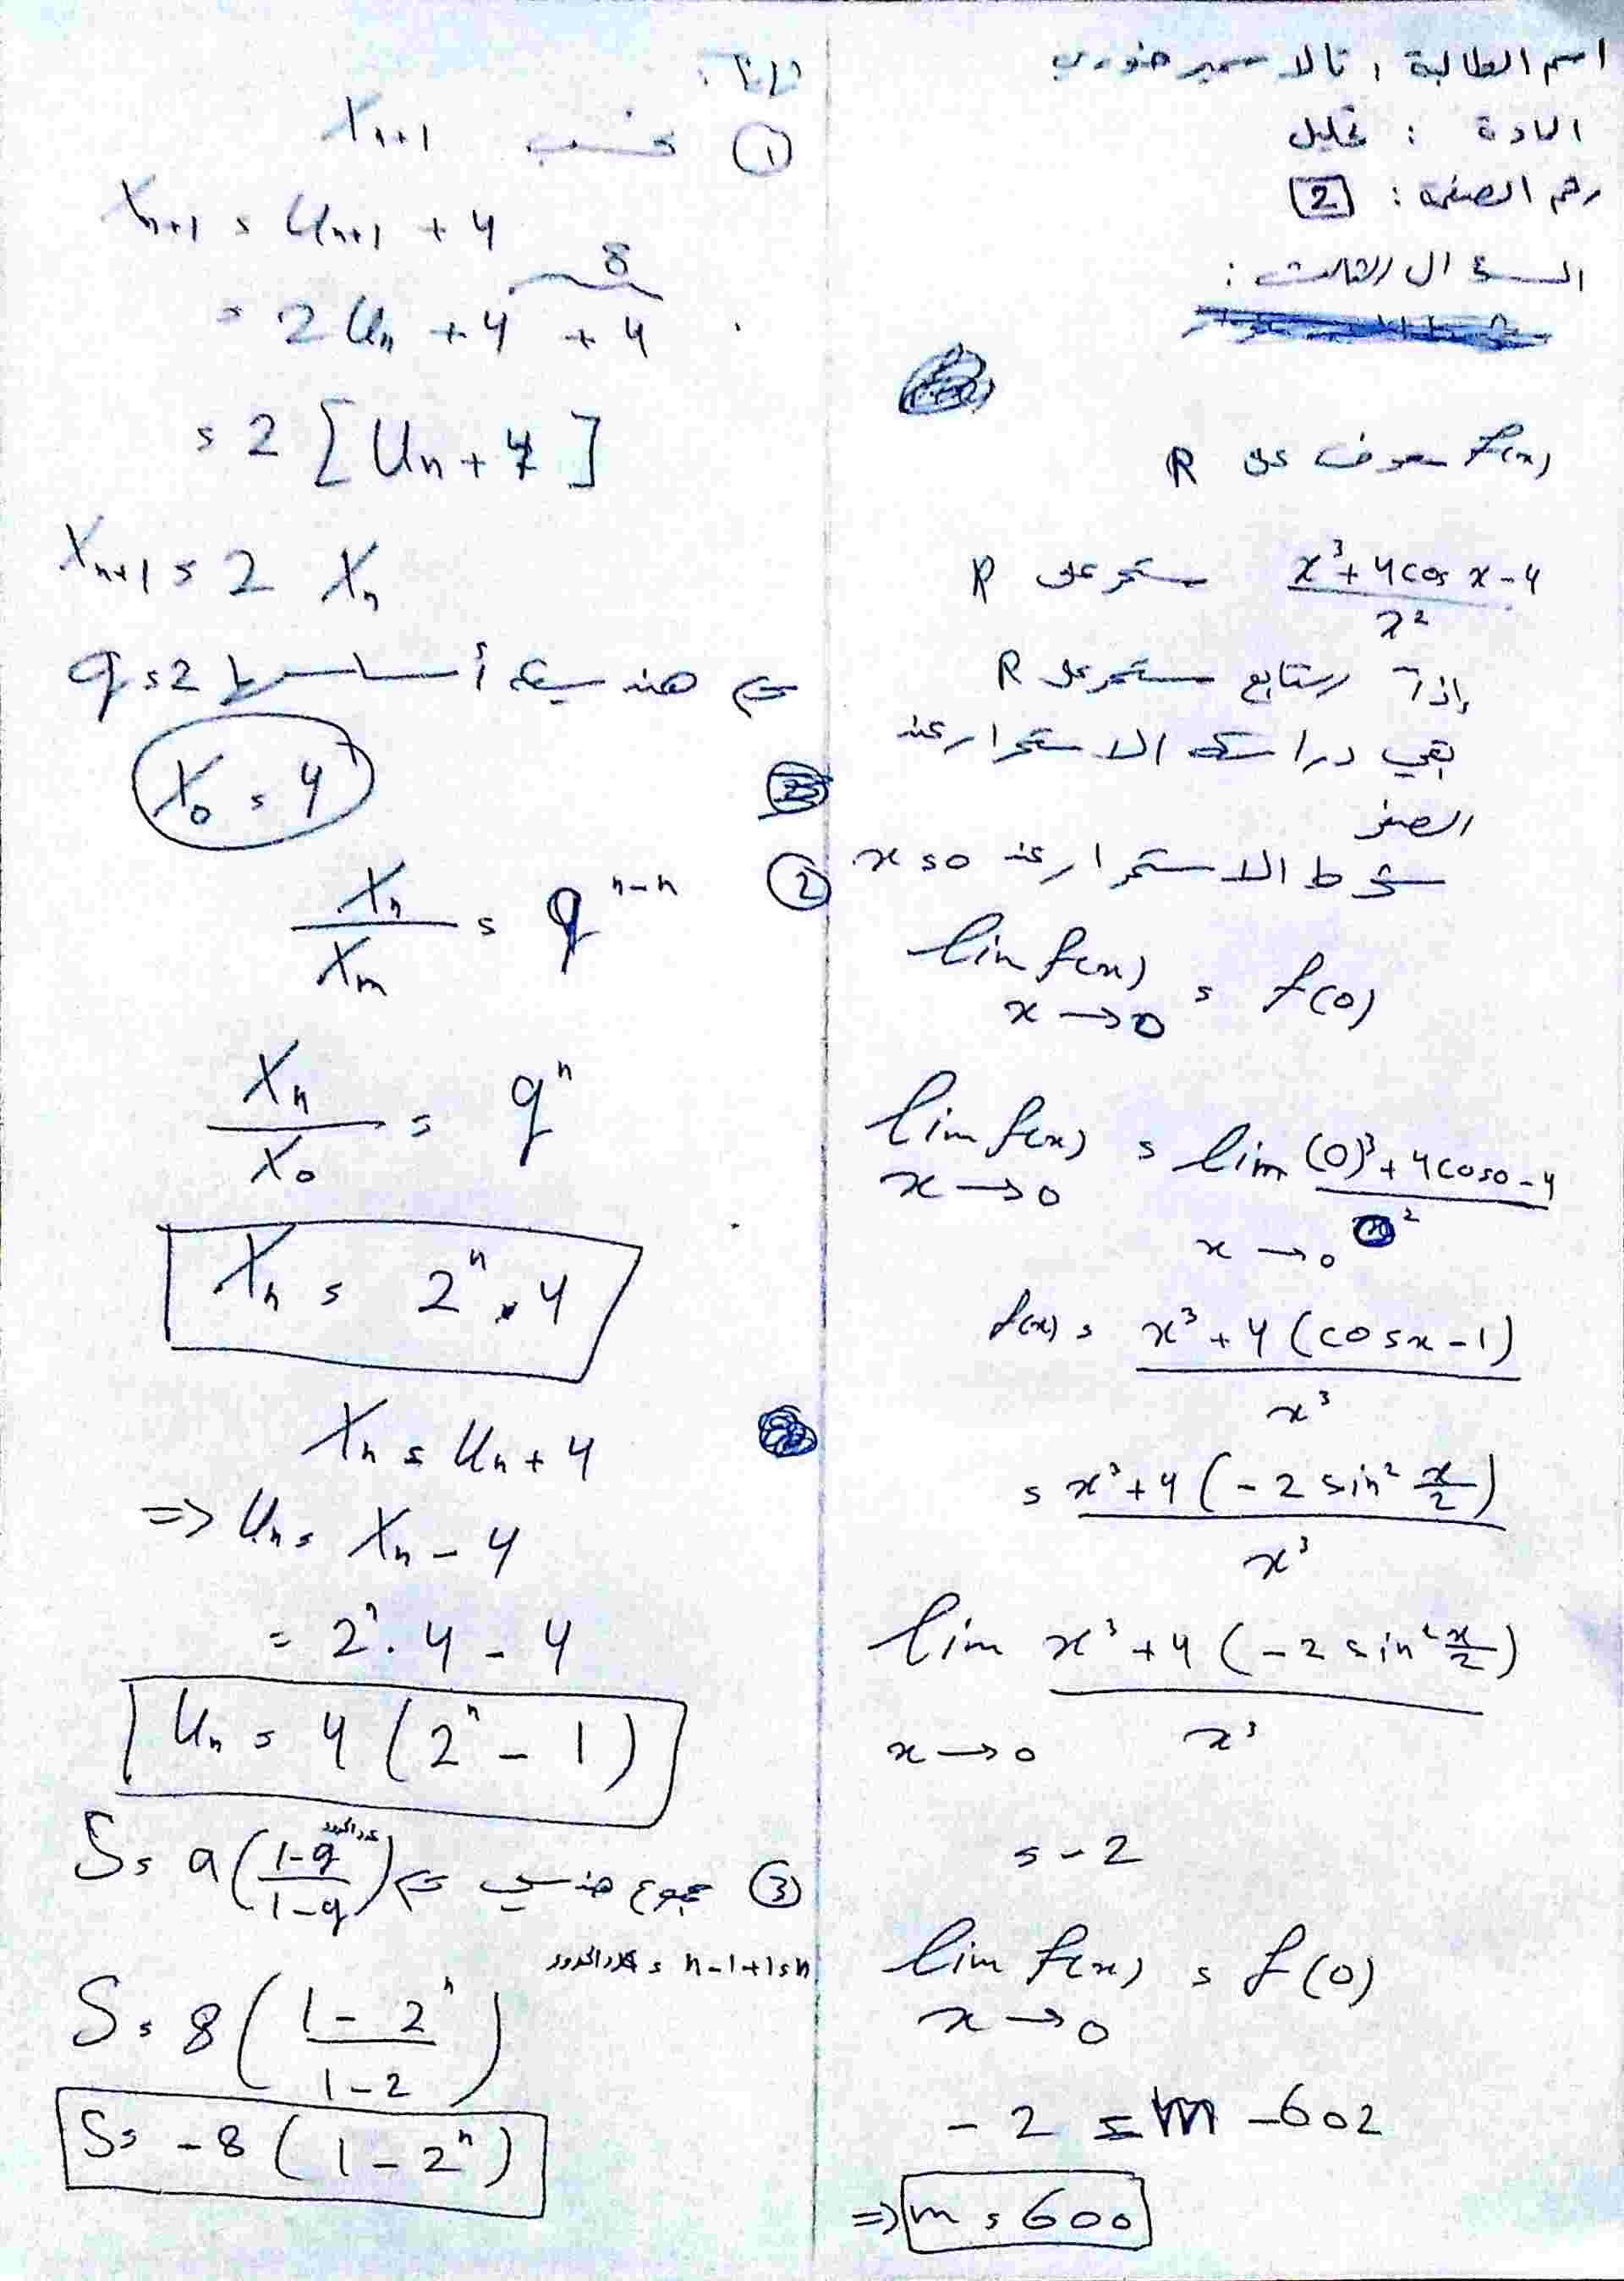 اسم الطالبة : تالا سمير خوري
المادة : تحليل
رقم الصفحة : 2
السؤال الثالث :
f(x) معرف على R
x³+4cos x-4 / x² مستمر على R
إذاً التابع مستمر على R
بقي دراسة الاستمرار عند
الصفر
شرط الاستمرار عند x=0
lim f(x) = f(0)
x→0
lim f(x) = lim (0)³+4cos0-4 / x²
x→0 x→0
f(x) = x³+4(cosx-1) / x³
= x³+4(-2sin² x/2) / x³
lim x³+4(-2sin² x/2) / x³
x→0
= -2
lim f(x) = f(0)
x→0
-2 = m-602
⇒ m = 600
ثانياً :
① نحسب Xn+1
Xn+1 = Un+1 + 4
8
= 2Un + 4 + 4
= 2[Un+4]
Xn+1 = 2 Xn
هندسية أساسها q=2
X0 = 4
② Xn / Xm = q^n-m
Xn / X0 = qⁿ
Xn = 2ⁿ.4
Xn = Un+4
⇒ Un = Xn-4
= 2ⁿ.4-4
Un = 4(2ⁿ-1)
③ مجموع هندسي S = a(1-q^عدد الحدود / 1-q)
عدد الحدود = n-1+1=n
S = 8(1-2ⁿ / 1-2)
S = -8(1-2ⁿ)